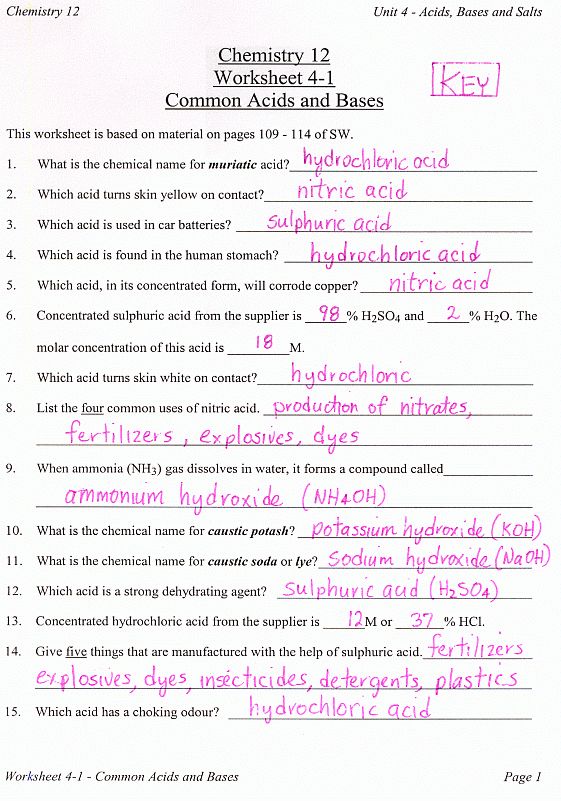 Chemistry 12 Unit 4 - Acids, Bases and Salts
Chemistry 12
Worksheet 4-1
Common Acids and Bases
KEY
This worksheet is based on material on pages 109 - 114 of SW.
1. What is the chemical name for muriatic acid? hydrochloric acid
2. Which acid turns skin yellow on contact? nitric acid
3. Which acid is used in car batteries? sulphuric acid
4. Which acid is found in the human stomach? hydrochloric acid
5. Which acid, in its concentrated form, will corrode copper? nitric acid
6. Concentrated sulphuric acid from the supplier is 98 % H2SO4 and 2 % H2O. The
molar concentration of this acid is 18 M.
7. Which acid turns skin white on contact? hydrochloric
8. List the four common uses of nitric acid. production of nitrates,
fertilizers, explosives, dyes
9. When ammonia (NH3) gas dissolves in water, it forms a compound called
ammonium hydroxide (NH4OH)
10. What is the chemical name for caustic potash? potassium hydroxide (KOH)
11. What is the chemical name for caustic soda or lye? sodium hydroxide (NaOH)
12. Which acid is a strong dehydrating agent? sulphuric acid (H2SO4)
13. Concentrated hydrochloric acid from the supplier is 12 M or 37 % HCl.
14. Give five things that are manufactured with the help of sulphuric acid. fertilizers
explosives, dyes, insecticides, detergents, plastics
15. Which acid has a choking odour? hydrochloric acid
Worksheet 4-1 - Common Acids and Bases Page 1